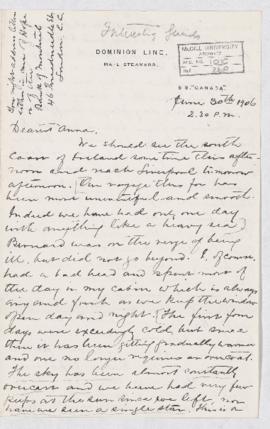 Interesting
DOMINION LINE,
MAIL STEAMERS.
McGILL UNIVERSITY
ARCHIVES
ACC. NO.
REF.
S.S. "CANADA"
June 30th 1906
2.30 P.M.
You might address letter
either in care of Hope
or of the
Bank of Montreal
46 Threadneedle St
London E.C.
Dearest Anna,
We should see the south
Coast of Ireland some time this after-
noon and reach Liverpool tomorrow
afternoon. The voyage thus far has
been most uneventful and smooth.
Indeed we have had only one day
with anything like a heavy sea.
Bernard was on the verge of being
ill, but did not go beyond. I, of course,
had a bad head and spent most of
the day in my cabin which is always
airy and fresh as we keep the window
open day and night. The first four
days were exceedingly cold but since
then it has been getting gradually warmer
and one no longer requires an overcoat.
The sky has been almost constantly
overcast and we have had very few
peeps at the sun since we left, nor
have we seen a single star. This is a